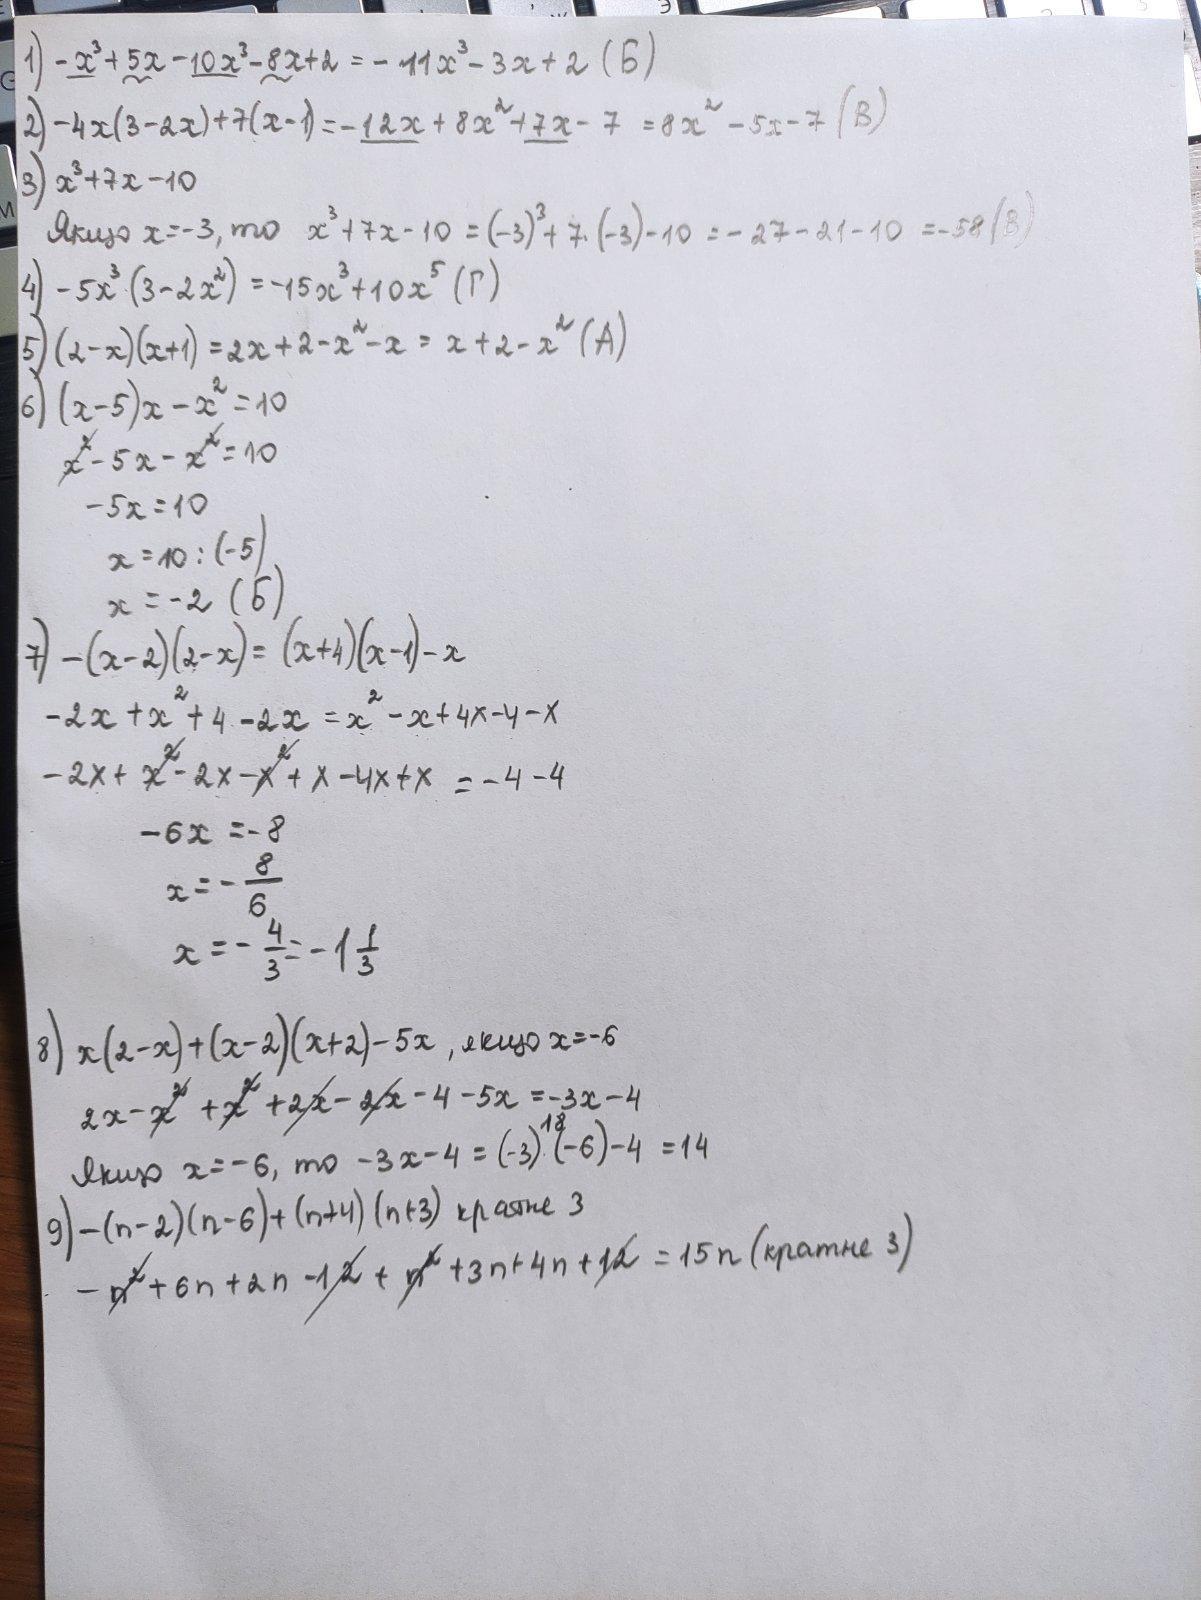 1) -x³+5x-10x³-8x+2=-11x³-3x+2 (Б)
2) -4x(3-2x)+7(x-1)=-12x+8x²+7x-7=8x²-5x-7 (В)
3) x³+7x-10
Якщо x=-3, то x³+7x-10=(-3)³+7·(-3)-10=-27-21-10=-58 (В)
4) -5x³(3-2x²)=-15x³+10x⁵ (Г)
5) (2-x)(x+1)=2x+2-x²-x=x+2-x² (А)
6) (x-5)x-x²=10
x²-5x-x²=10
-5x=10
x=10:(-5)
x=-2 (Б)
7) -(x-2)(2-x)=(x+4)(x-1)-x
-2x+x²+4-2x=x²-x+4x-4-x
-2x+x²-2x-x²+x-4x+x=-4-4
-6x=-8
x=-8/6
x=-4/3=-1 1/3
8) x(2-x)+(x-2)(x+2)-5x, якщо x=-6
2x-x²+x²+2x-2x-4-5x=-3x-4
18
Якщо x=-6, то -3x-4=(-3)·(-6)-4=14
9) -(n-2)(n-6)+(n+4)(n+3) кратне 3
-n²+6n+2n-12+n²+3n+4n+12=15n (кратне 3)